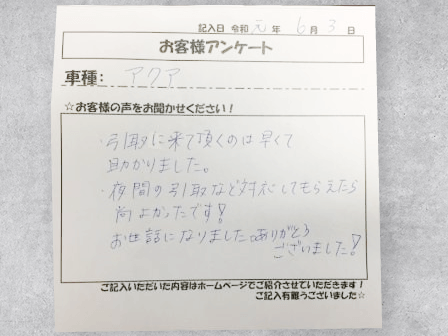 記入日 令和 元 年 6 月 3 日
お客様アンケート
車種: アクア
☆お客様の声をお聞かせください!
・引取に来て頂くのは早くて
助かりました。
・夜間の引取など対応してもらえたら
尚よかったです!
お世話になりました。ありがとう
ございました!
ご記入いただいた内容はホームページでご紹介させていただきます!
ご記入有難うございました☆